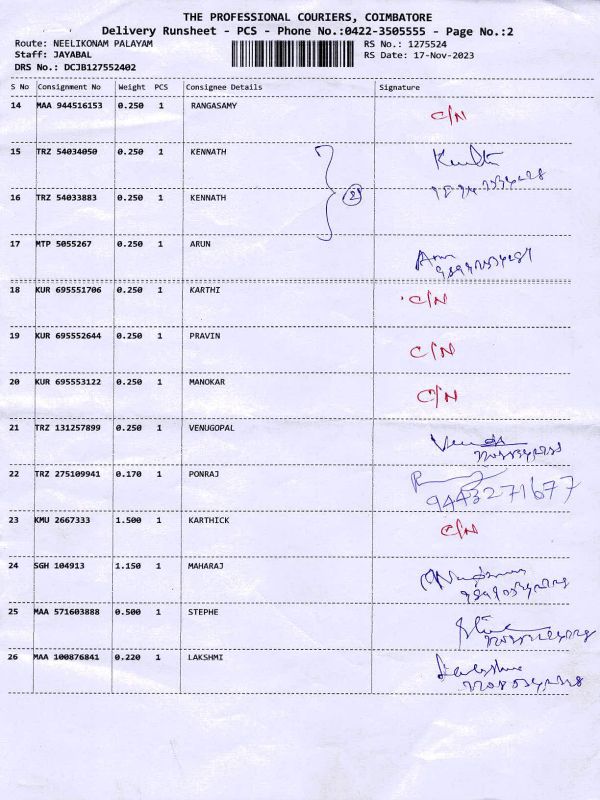 THE PROFESSIONAL COURIERS, COIMBATORE
Delivery Runsheet - PCS - Phone No.:0422-3505555 - Page No.:2
Route: NEELIKONAM PALAYAM RS No.: 1275524
Staff: JAYABAL RS Date: 17-Nov-2023
DRS No.: DCJB127552402
S No Consignment No Weight PCS Consignee Details Signature
14 MAA 944516153 0.250 1 RANGASAMY C/N
15 TRZ 54034050 0.250 1 KENNATH
2
16 TRZ 54033883 0.250 1 KENNATH
17 MTP 5055267 0.250 1 ARUN Arun
18 KUR 695551706 0.250 1 KARTHI C/N
19 KUR 695552644 0.250 1 PRAVIN C/N
20 KUR 695553122 0.250 1 MANOKAR C/N
21 TRZ 131257899 0.250 1 VENUGOPAL
22 TRZ 275109941 0.170 1 PONRAJ
9443271677
23 KMU 2667333 1.500 1 KARTHICK C/N
24 SGH 104913 1.150 1 MAHARAJ
25 MAA 571603888 0.500 1 STEPHE
26 MAA 100876841 0.220 1 LAKSHMI